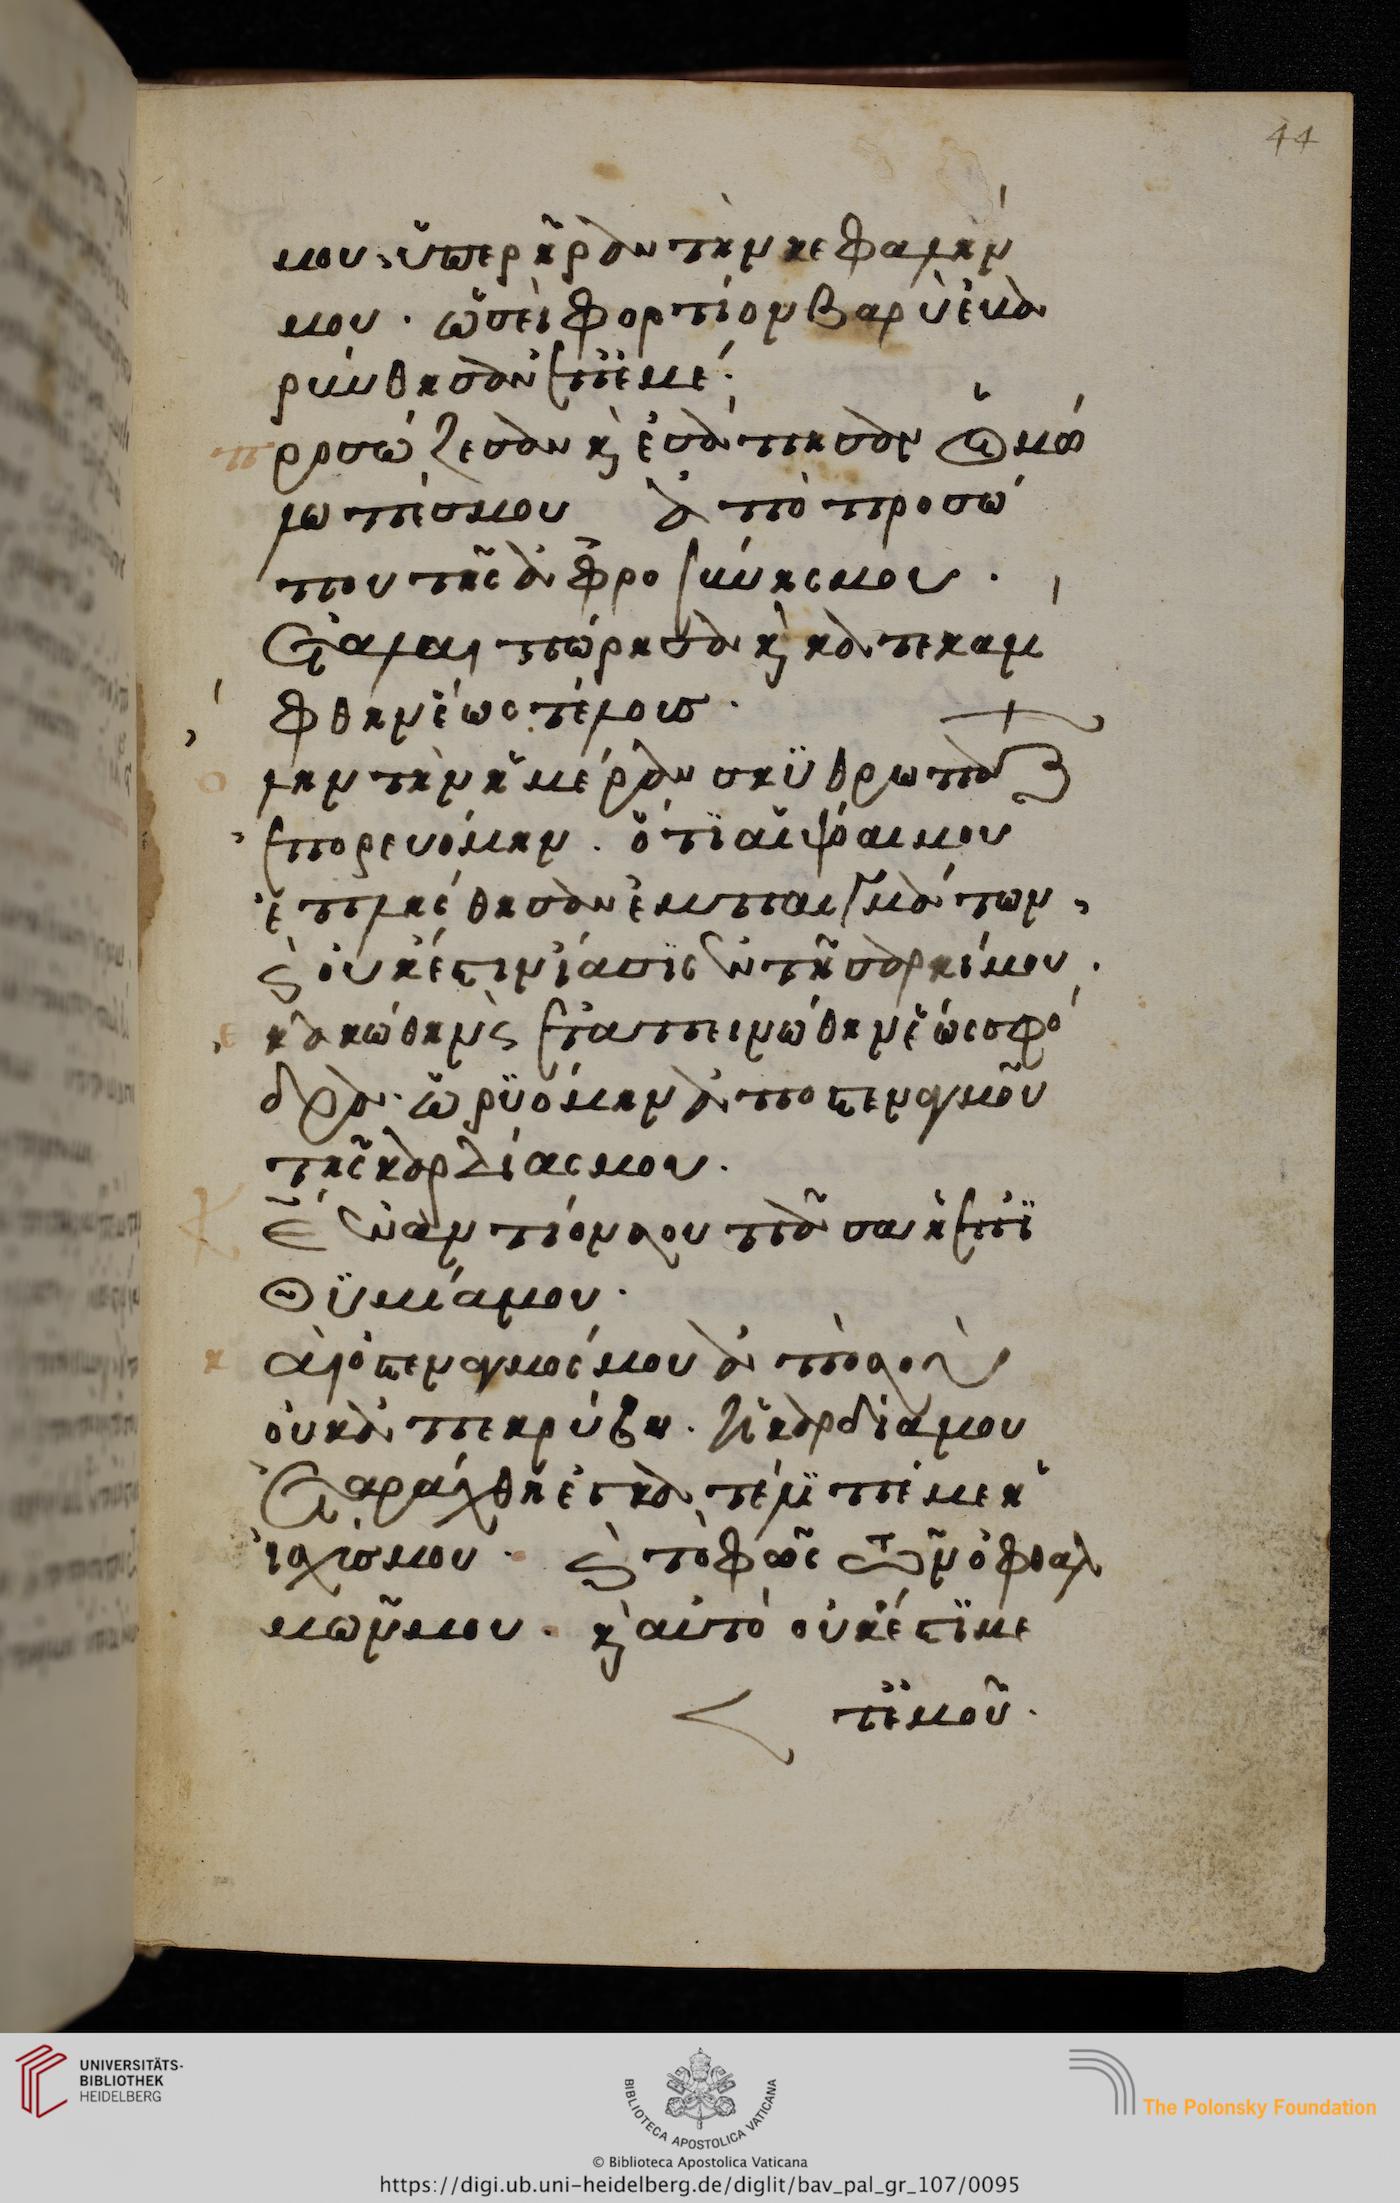 44
μου· ὑπερῆραν τὴν κεφαλήν
μου· ὡσεὶ φορτίον βαρὺ ἐβα
ρύνθησαν ἐπ' ἐμέ·
προσώζεσαν καὶ ἐσάπησαν οἱ μώ
λωπές μου ἀπὸ προσώ
που τῆς ἀφροσύνης μου·
ἐταλαιπώρησα καὶ κατεκάμ
φθην ἕως τέλους·
ὅλην τὴν ἡμέραν σκυθρωπάζ
ἐπορευόμην· ὅτι αἱ ψόαι μου
ἐπλήσθησαν ἐμπαιγμάτων,
καὶ οὐκ ἔστιν ἴασις ἐν τῇ σαρκί μου·
ἐκακώθην καὶ ἐταπεινώθην ἕως σφό
δρα· ὠρυόμην ἀπὸ στεναγμοῦ
τῆς καρδίας μου·
Κε ἐναντίον σου πᾶσα ἡ ἐπι
θυμία μου·
καὶ ὁ στεναγμός μου ἀπὸ σοῦ
οὐκ ἀπεκρύβη· ἡ καρδία μου
ἐταράχθη ἐγκατέλιπέ με ἡ
ἰσχύς μου· καὶ τὸ φῶς τῶν ὀφθαλ
μῶν μου· καὶ αὐτὸ οὐκ ἔστι με
τ' ἐμοῦ·
UNIVERSITÄTS-
BIBLIOTHEK
HEIDELBERG
BIBLIOTECA APOSTOLICA VATICANA
The Polonsky Foundation
© Biblioteca Apostolica Vaticana
https://digi.ub.uni-heidelberg.de/diglit/bav_pal_gr_107/0095